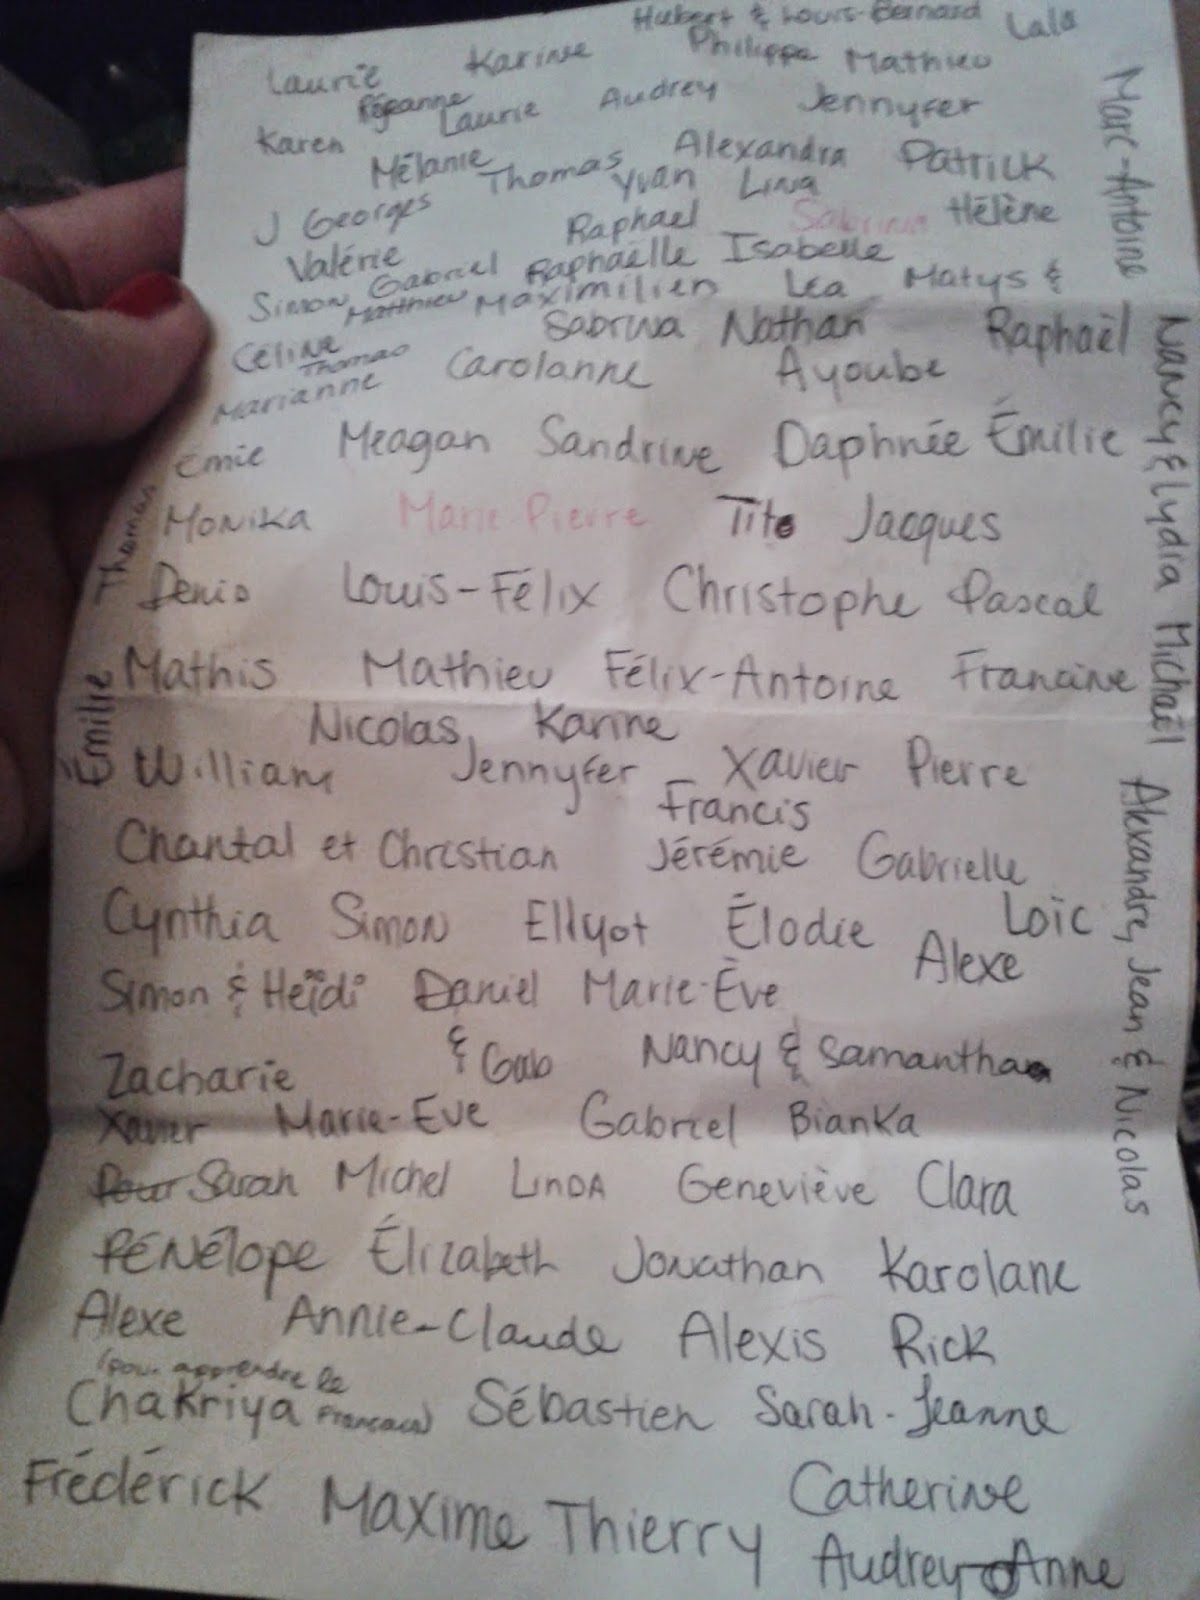 Hubert & Louis-Bernard Lalo
Laurie Karine Philippe Mathieu
Réjeanne Laurie Audrey Jennyfer
Karen Mélanie Thomas Alexandra Patrick
J Georges Yvan Lina
Valérie Raphael Sabrina Hélène
Simon Gabriel Raphaëlle Isabelle
Matthieu Maximilien Léa Matys &
Céline Sabrina Nathan Raphaël
Thomas
Marianne Carolanne Ayoube
Emie Meagan Sandrine Daphnée Émilie
Monika Marie-Pierre Tito Jacques
Denis Louis-Félix Christophe Pascal
Mathis Mathieu Félix-Antoine Francine
Nicolas, Karine
William Jennyfer - Xavier Pierre
Francis
Chantal et Christian Jérémie Gabrielle
Cynthia Simon Ellyot Élodie Loïc
Alexe
Simon & Heïdi Daniel Marie-Ève
& Gab Nancy & Samantha
Zacharie
Xavier Marie-Eve Gabriel Bianka
Pour Sarah Michel LINDA Geneviève Clara
PÉNélope Élizabeth Jonathan Karolane
Alexe Annie-Claude Alexis Rick
(pour apprendre le
Chakriya Francais) Sébastien Sarah-Jeanne
Frédérick Maxime Thierry Catherine
Audrey-Anne
Thomas
Émilie
Marc-Antoine
Nancy & Lydia Michaël
Alexandre, Jean & Nicolas